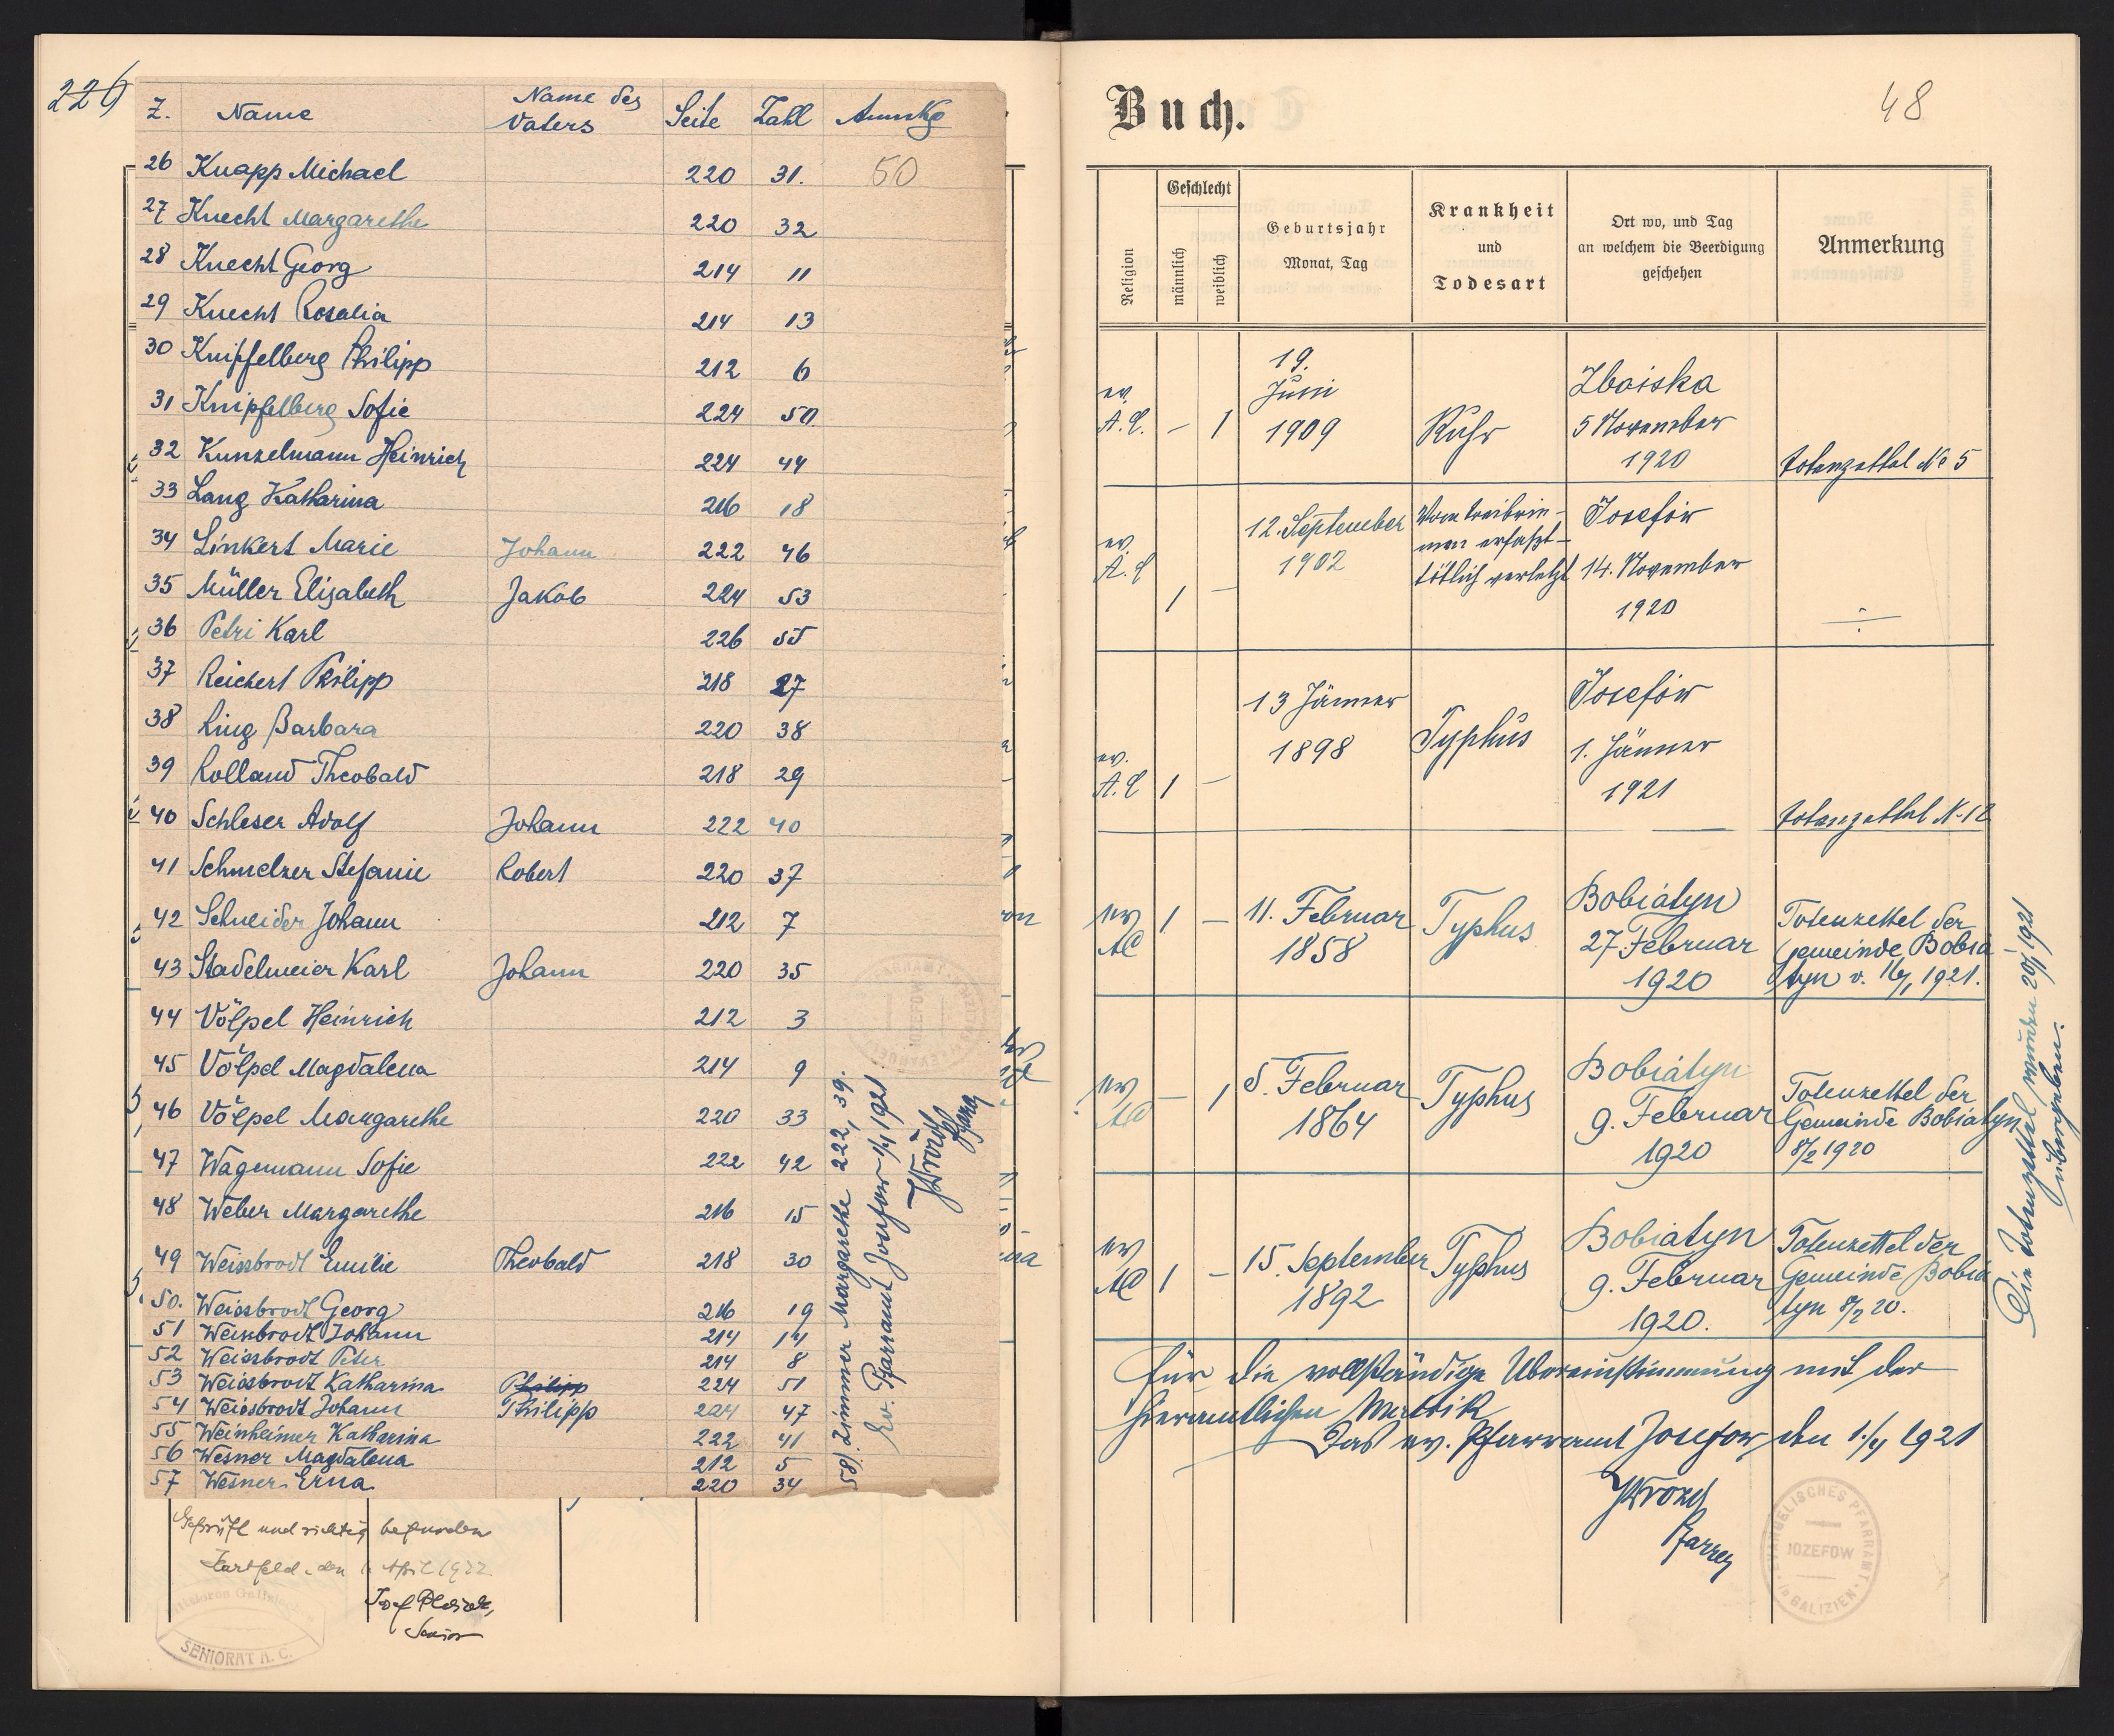 226
Z. Name Name des Vaters Seite Zahl Anmkg
26 Knapp Michael 220 31. 50
27 Knecht Margarethe 220 32
28 Knecht Georg 214 11
29 Knecht Rosalia 214 13
30 Knipfelberg Philipp 212 6
31 Knipfelberg Sofie 224 50
32 Kunzelmann Heinrich 224 44
33 Lang Katharina 216 18
34 Linkert Marie Johann 222 46
35 Müller Elisabeth Jakob 224 53
36 Petri Karl 226 55
37 Reichert Philipp 218 27
38 Ring Barbara 220 38
39 Rolland Theobald 218 29
40 Schleser Adolf Johann 222 40
41 Schmelzer Stefanie Robert 220 37
42 Schneider Johann 212 7
43 Stadelmeier Karl Johann 220 35
44 Völpel Heinrich 212 3
45 Völpel Magdalena 214 9
46 Völpel Margarethe 220 33
47 Wagemann Sofie 222 42
48 Weber Margarethe 216 15
49 Weissbrodt Emilie Theobald 218 30
50. Weissbrodt Georg 216 19
51 Weissbrodt Johann 214 14
52 Weissbrodt Peter 214 8
53 Weissbrodt Katharina Philipp 224 51
54 Weissbrodt Johann Philipp 224 47
55 Weinheimer Katharina 222 41
56 Wesner Magdalena 212 5
57 Wesner Erna 220 34
58/. Zimmer Margarethe 222, 39.
Ev. Pfarramt Josefow 1/4 1921
Pfarrer
Geprüft und richtig befunden
Hartfeld, den April 1922
Senior
SENIORAT A. C.
Buch.
48
Religion
Geschlecht
männlich
weiblich
Geburtsjahr
Monat, Tag
Krankheit
und
Todesart
Ort wo, und Tag
an welchem die Beerdigung
geschehen
Anmerkung
ev. A.C. – 1 19. Juni 1909 Ruhr Zboiska 5 November 1920 Totenzettel No 5
ev. A.C. 1 – 12. September 1902 Vom Treibriemen erfaßt – tötlich verletzt Josefów 14. November 1920
ev. A.C. 1 – 13 Jänner 1898 Typhus Josefów 1. Jänner 1921 Totenzettel N. 12
ev AC 1 – 11. Februar 1858 Typhus Bobiatyn 27. Februar 1920 Totenzettel der Gemeinde Bobiatyn v. 1921.
ev AC – 1 5. Februar 1864 Typhus Bobiatyn 9. Februar 1920 Totenzettel der Gemeinde Bobiatyn 8/2 1920
ev AC 1 – 15. September 1892 Typhus Bobiatyn 9. Februar 1920. Totenzettel der Gemeinde Bobiatyn 8/2 20.
Die Totenzettel wurden 20/1 1921
übergeben.
Für die vollständige Übereinstimmung mit der
hieramtlichen Matrik
Das ev. Pfarramt Josefow, den 1./4 1921
Pfarrer
EVANGELISCHES PFARRAMT
JOZEFOW
IN GALIZIEN